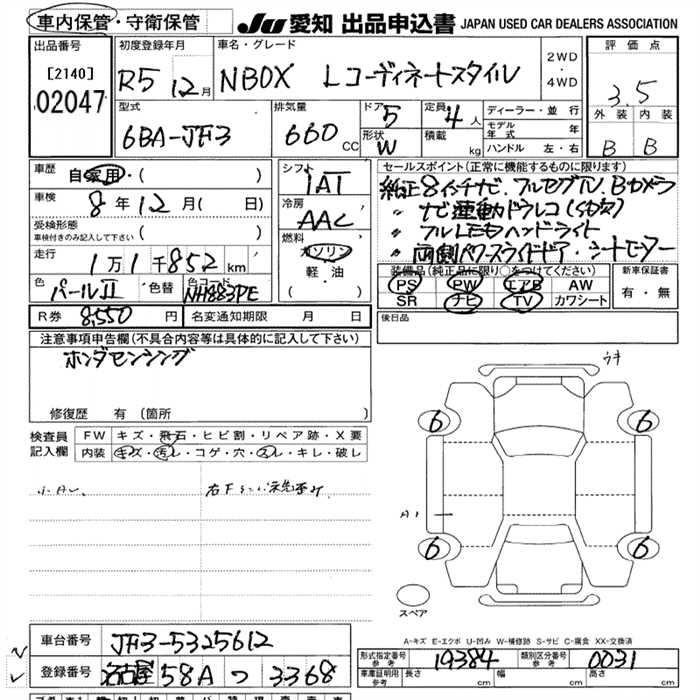 車内保管・守衛保管
JU 愛知 出品申込書 JAPAN USED CAR DEALERS ASSOCIATION
出品番号
[2140]
02047
初度登録年月
R5 12月
車名・グレード
NBOX Lコーディネートスタイル
2WD
・
4WD
評価点
3.5
外装 内装
B B
型式
6BA-JF3
排気量
660 CC
ドア 5
形状 W
定員 4人
積載 kg
ディーラー・並行
モデル年式 年
ハンドル 左・右
車歴
自家用・( )
車検
8年12月( 日)
受検形態
車検付きのみ記入して下さい ( )
走行
1万1千852km
色
パールII
色替
カラーコード
NH883PE
R券 8,550円
名変通知期限 月 日
シフト
IAT
冷房
AAC
燃料
ガソリン
軽・油
( )
セールスポイント(正常に機能するものに限ります)
純正8インチナビ、フルセグTV、Bカメラ
〃 ナビ連動ドラレコ
〃 フルLEDヘッドライト
〃 両側パワースライドドア・シートヒーター
装備品(純正品に限り○をつけてください)
PS PW エアB AW
SR ナビ TV カワシート
新車保証書
有・無
後日品
注意事項申告欄(不具合内容等は具体的に記入して下さい)
ホンダセンシング
修復歴 有 (箇所 )
検査員
記入欄
FW キズ・飛石・ヒビ割・リペア跡・X要
内装 キズ・汚レ・コゲ・穴・スレ・キレ・破レ
6 6
A1
6 6
スペア
A-キズ E-エクボ U-凹み W-補修跡 S-サビ C-腐食 XX-交換済
車台番号 JF3-5325612
登録番号 名古屋 58A つ 3368
形式指定番号
参考
19384
類別区分番号
参考
0031
車庫証明用
参考
長さ cm 幅 cm 高さ cm